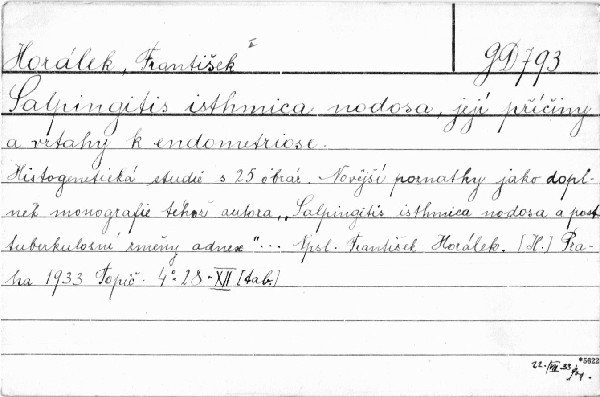 Horálek, František I GD793
Salpingitis isthmica nodosa, její příčiny
a vztahy k endometriose.
Histogenetická studie s 25 obraz. Novější poznatky jako dopl-
něk monografie téhož autora „Salpingitis isthmica nodosa a post
tuberkulosní změny adnex"... Npsl. František Horálek. [H.] Pra-
ha 1933 Topič. 4° 28 - XII [tab.]
*5622
22./VII.33